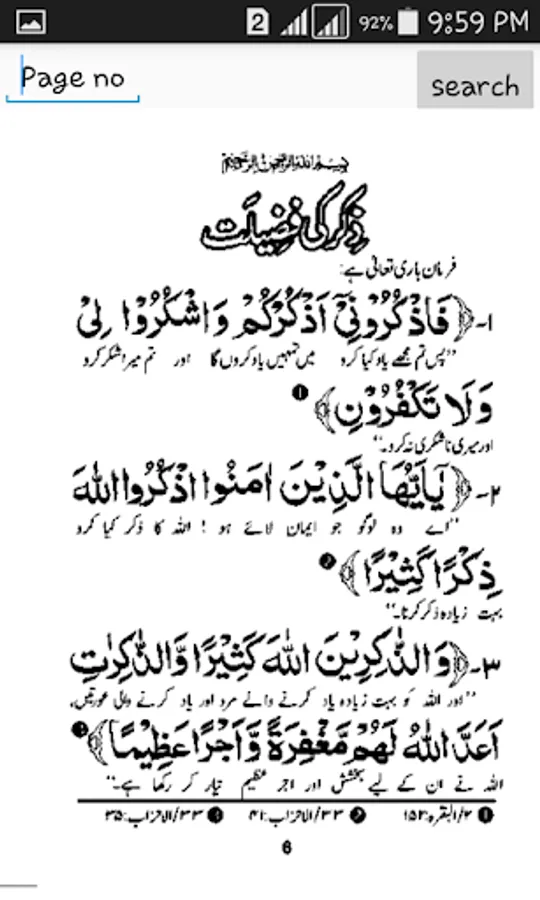 2 92% 9:59 PM
Page no search
بسم اللہ الرحمن الرحیم
ذکر کی فضیلت
فرمان باری تعالیٰ ہے:
۱- ﴿فَاذْكُرُوْنِيْٓ اَذْكُرْكُمْ وَاشْكُرُوْا لِيْ
’’پس تم مجھے یاد کیا کرو میں تمہیں یاد کروں گا اور تم میرا شکر کرو
وَلَا تَكْفُرُوْنِ﴾ ❶
اور میری ناشکری نہ کرو۔‘‘
۲- ﴿يٰٓاَيُّهَا الَّذِيْنَ اٰمَنُوا اذْكُرُوا اللّٰهَ
’’اے وہ لوگو جو ایمان لائے ہو! اللہ کا ذکر کیا کرو
ذِكْرًا كَثِيْرًا﴾ ❷
بہت زیادہ ذکر کرنا۔‘‘
۳- ﴿وَالذّٰكِرِيْنَ اللّٰهَ كَثِيْرًا وَّالذّٰكِرٰتِ
’’اور اللہ کو بہت زیادہ یاد کرنے والے مرد اور یاد کرنے والی عورتیں،
اَعَدَّ اللّٰهُ لَهُمْ مَّغْفِرَةً وَّاَجْرًا عَظِيْمًا﴾ ❸
اللہ نے ان کے لیے بخشش اور اجر عظیم تیار کر رکھا ہے۔‘‘
❶ ۲/البقرہ:۱۵۲ ❷ ۳۳/الاحزاب:۴۱ ❸ ۳۳/الاحزاب:۳۵
6